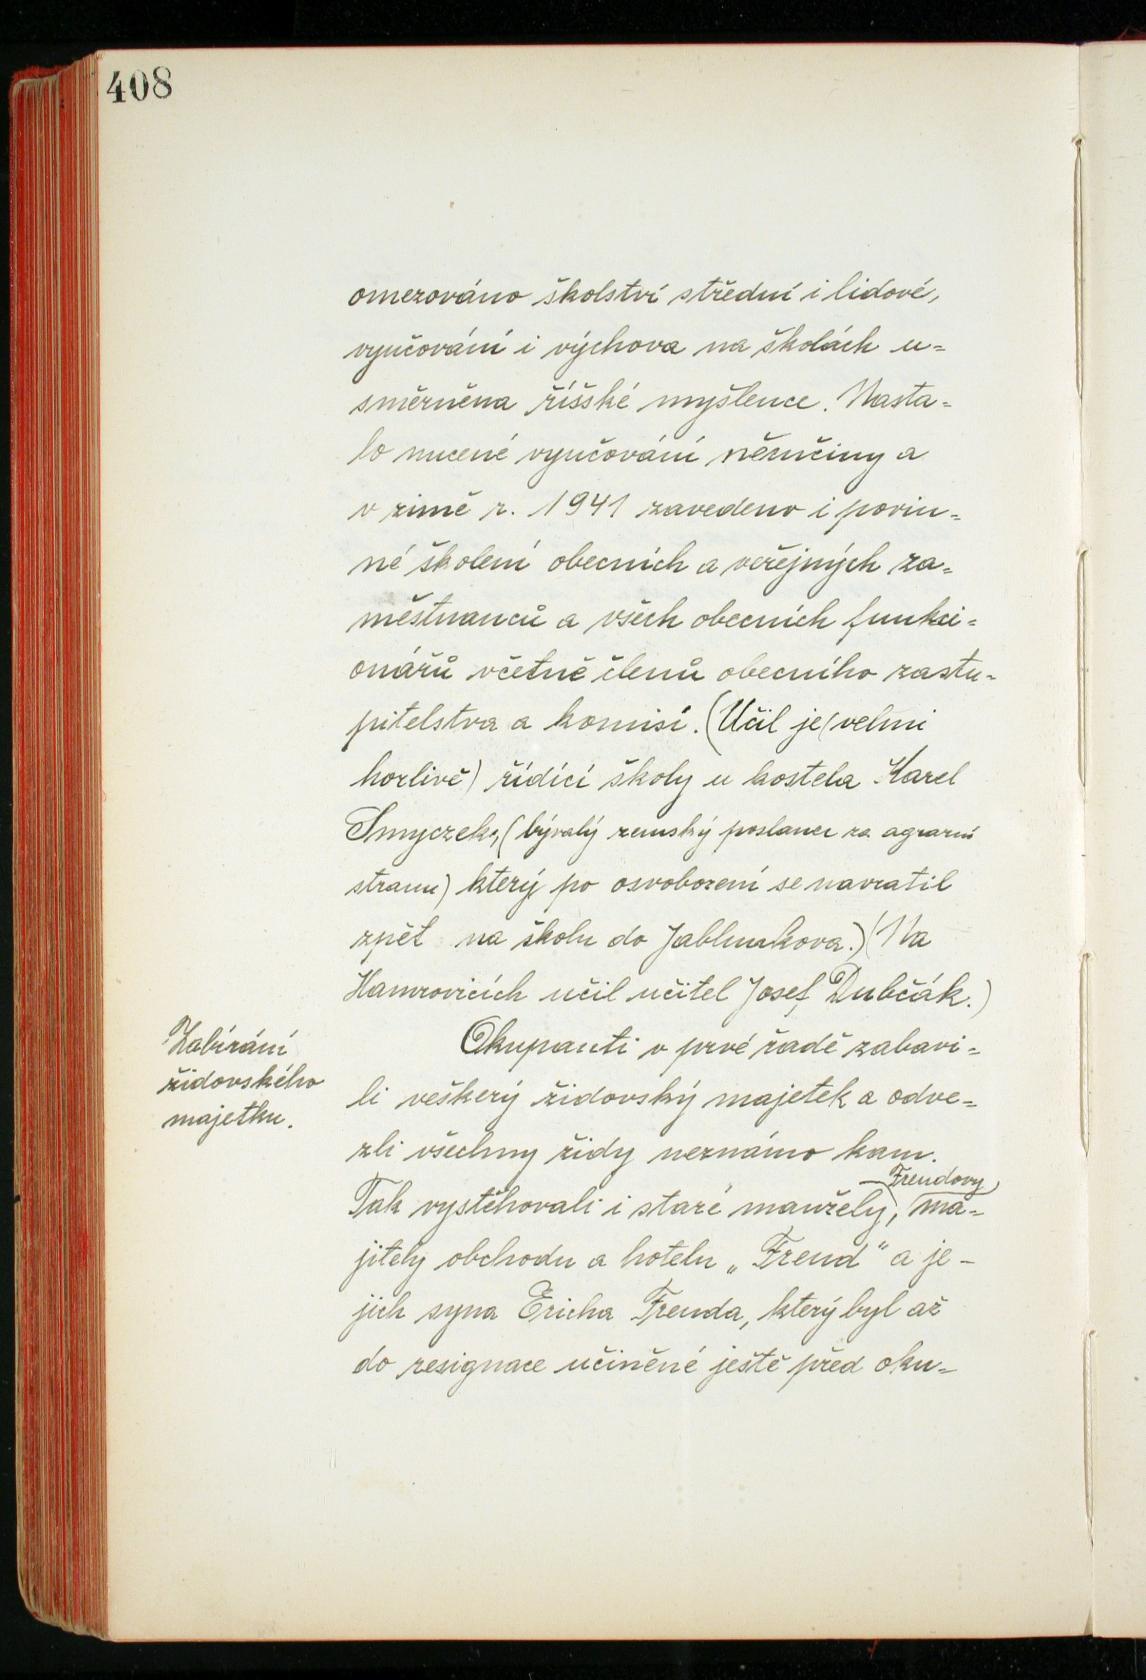 408
omezováno školství střední i lidové,
vyučování i výchova na školách u-
směrněna říšské myšlence. Nasta-
lo nucené vyučování němčiny a
v zimě r. 1941 zavedeno i povin-
né školení obecních a veřejných za-
městnanců a všech obecních funkci-
onářů včetně členů obecního zastu-
pitelstva a komisí. (Učil je (velmi
horlivě) řídící školy u kostela Karel
Smyczek, (bývalý zemský poslanec za agrarní
stranu) který po osvobození se navratil
zpět na školu do Jablunkova.) (Na
Hamrovicích učil učitel Josef Dubčák.)
Zabírání
židovského
majetku.
Okupanti v prvé řadě zabavi-
li veškerý židovský majetek a odve-
zli všechny židy neznámo kam.
Frendovy
Tak vystěhovali i staré manžely, ma-
jitely obchodu a hotelu „Frend" a je-
jich syna Ericha Frenda, který byl až
do resignace učiněné ještě před oku-